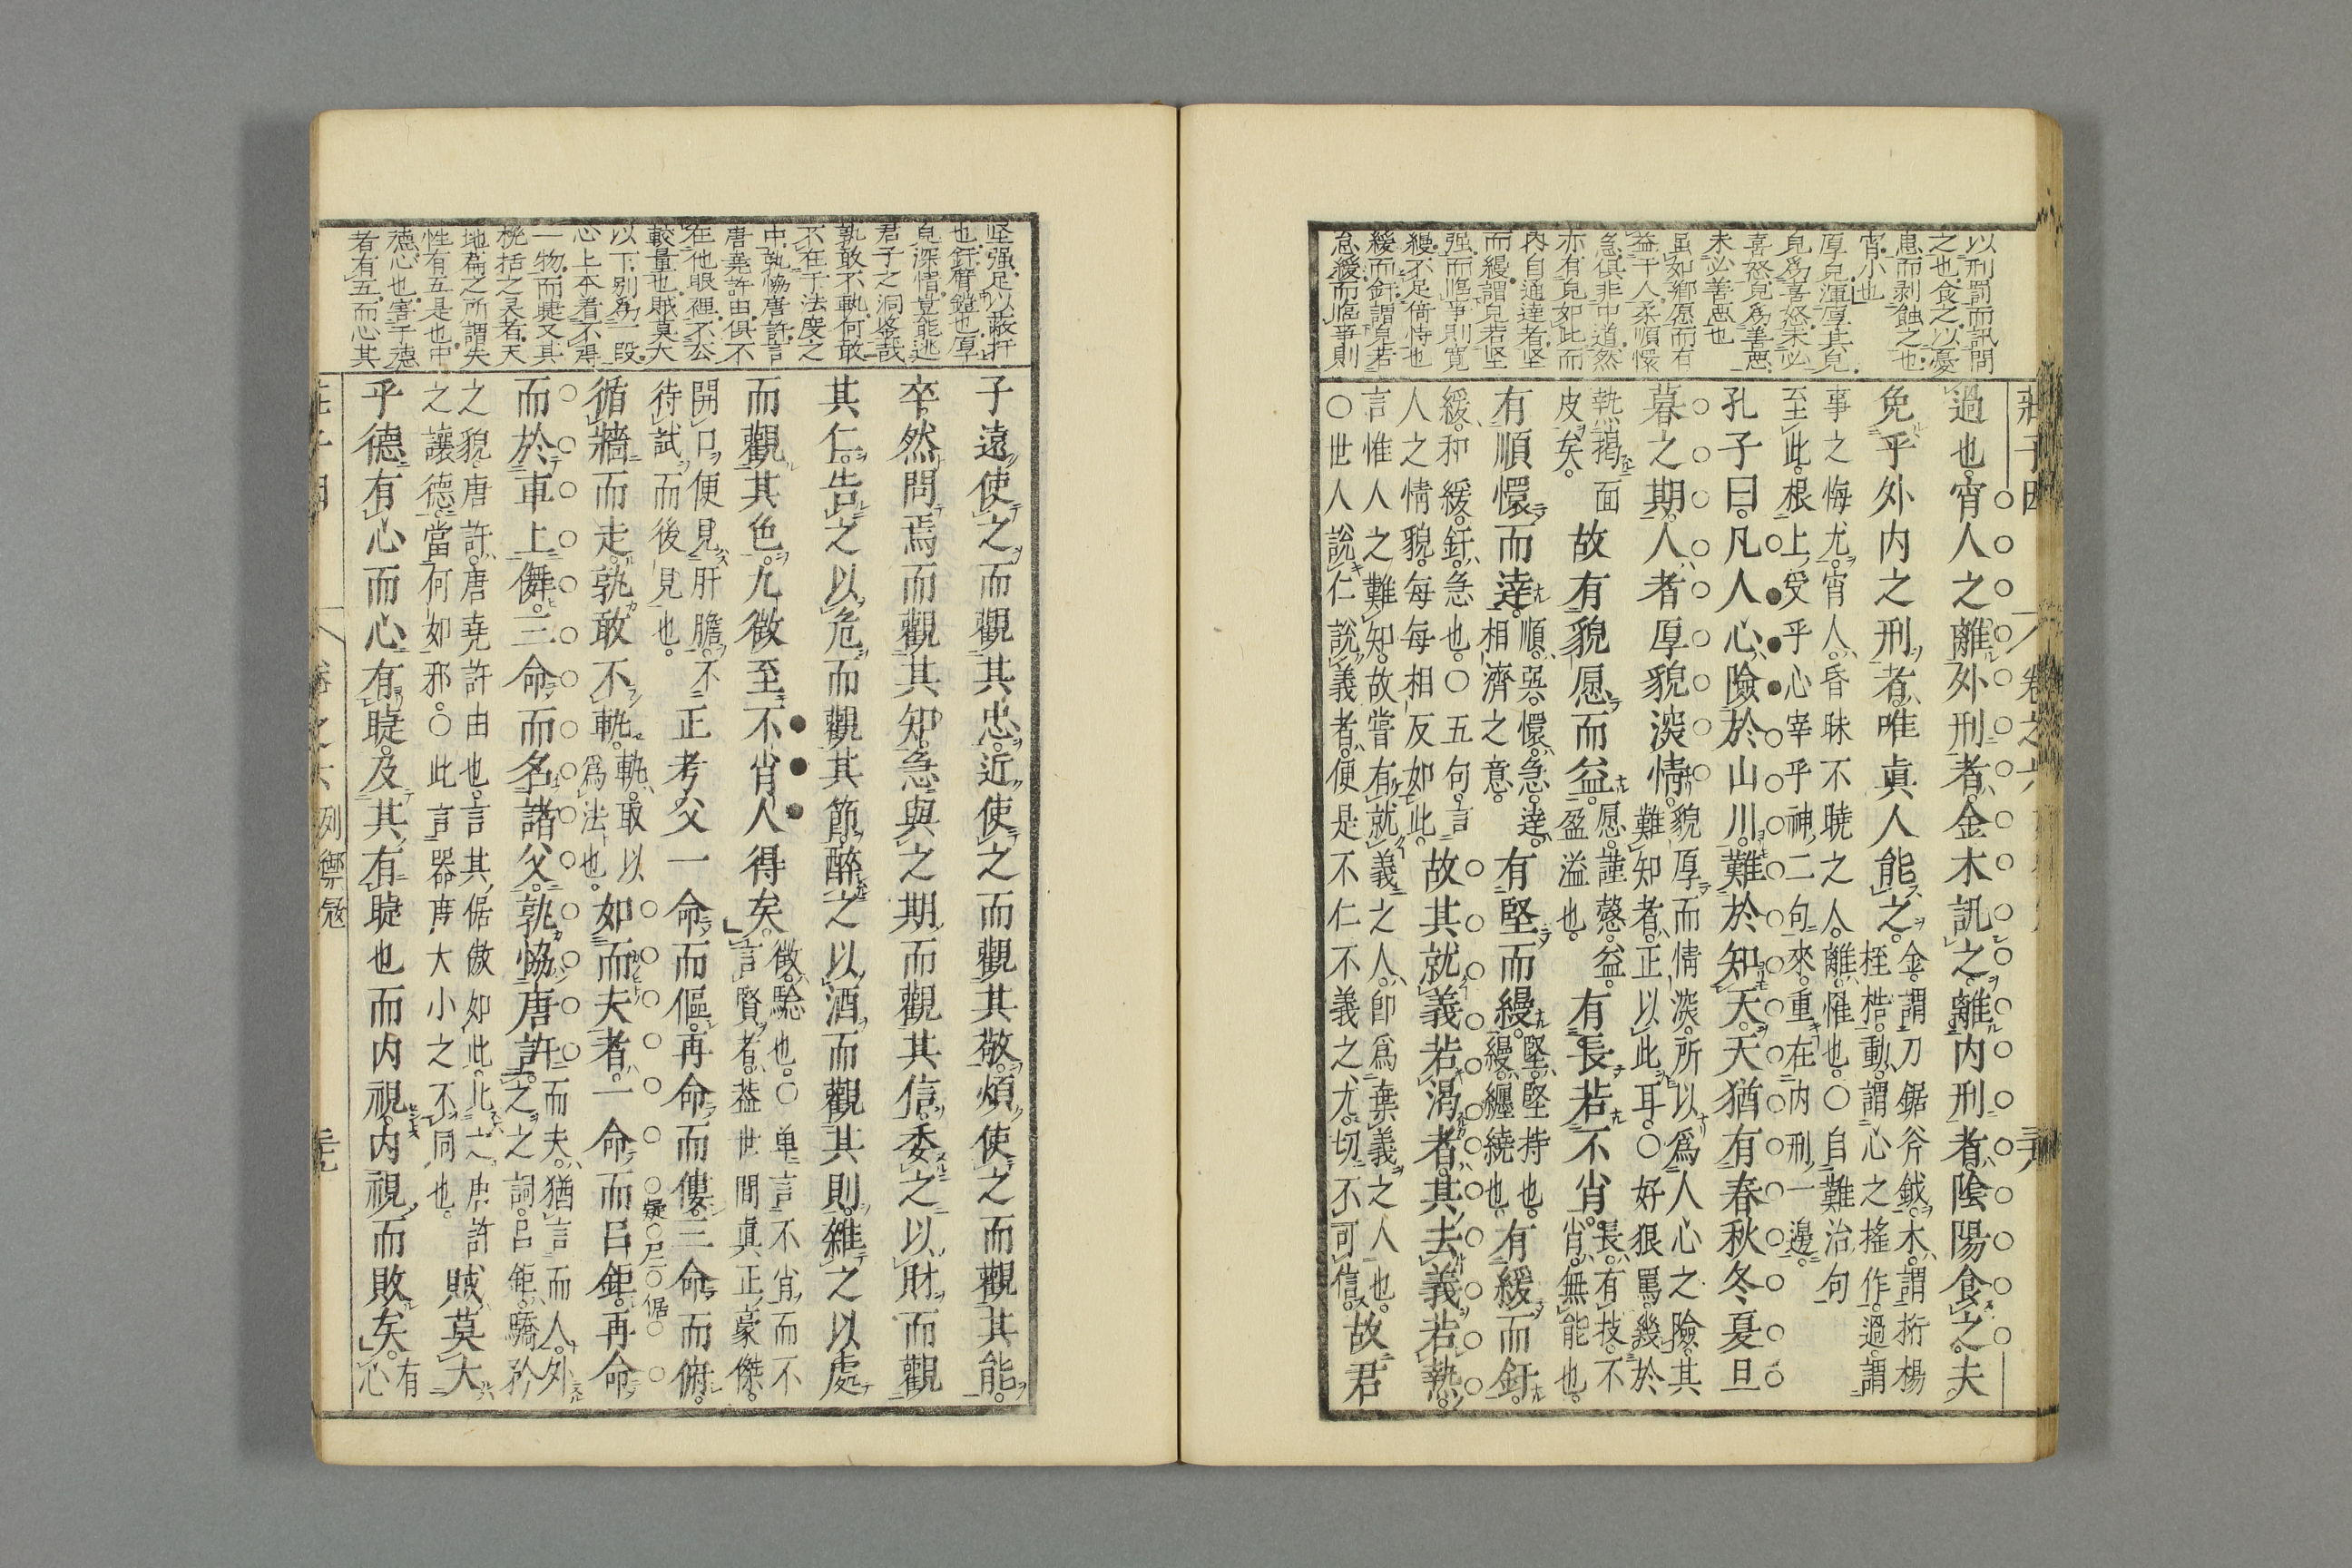 以刑罰而訊問
之也食之以憂
患而剥蝕之也
宵小也
厚皃渾厚其皃
皃爲喜怒未必
喜怒皃爲善悪
未必善悪也
虽如鄉愿而有
益于人柔順懁
急俱非中道然
亦有皃如此而
内自通達者坚
而縵謂皃若坚
强而臨爭則寛
縵不足倚恃也
緩而釬謂皃若
怠緩而臨爭則
過也宵人之離外刑者金木訊之離内刑者陰陽食之夫
免乎外内之刑者唯眞人能之金謂刀鋸斧鉞木謂桁楊
桎梏動謂心之搖作過謂
事之悔尤宵人昏昧不曉之人離罹也○自難治句
至此根上受乎心宰乎神二句來重在内刑一邊
孔子曰凡人心險於山川難於知天天猶有春秋冬夏旦
暮之期人者厚貌深情貌厚而情深所以爲人心之險其
難知者正以此耳○好狠罵幾於
熱揭面
皮矣
故有貌愿而益愿謹愨益
盈溢也
有長若不肖長有技不
肖無能也
有順懁而達順巽懁急達
相濟之意
有堅而縵堅堅持也
縵纏繞也
有緩而釬
緩和緩釬急也○五句言
人之情貌每每相反如此
故其就義若渴者其去義若熱
言惟人之難知故嘗有就義之人卽爲棄義之人也
○世人說仁說義者便是不仁不義之尤切不可信
故君
莊子因
卷之六
子遠使之而觀其忠近使之而觀其敬煩使之而觀其能
卒然問焉而觀其知急與之期而觀其信委之以財而觀
其仁告之以危而觀其節醉之以酒而觀其則雜之以處
而觀其色九徵至不肖人得矣徵驗也○单言不肖而不
言賢者蓋世間眞正豪傑
開口便見肝膽不
待試而後見也
正考父一命而傴再命而僂三命而俯
循牆而走孰敢不軌軌取以
爲法也
如而夫者一命而呂鉅再命
疑 尸 倨
而於車上儛三命而名諸父孰協唐許而夫猶言而人外
之之詞呂鉅驕矜
之貌唐許唐堯許由也言其倨傲如此此之唐許
之讓德當何如邪○此言器度大小之不同也
賊莫大
乎德有心而心有睫及其有睫也而内視内視而敗矣有
心
坚强足以蔽扞
也釬臂鎧也厚
皃深情豈能逃
君子之洞鉴哉
孰敢不軌何敢
不在于法度之
中孰協唐許言
唐堯許由俱不
在他眼裡不公
較量也賊莫大
以下别爲一段
心上本者不得
一物而輿又其
桄括之灵者天
地篇之所謂失
性有五是也中
德心也害于德
者有五而心其
列禦冦